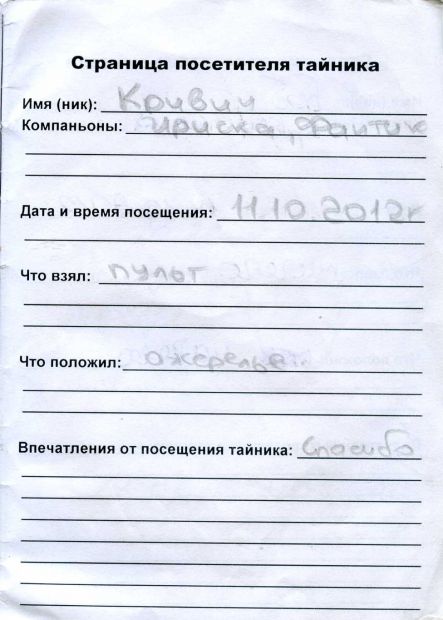 Страница посетителя тайника
Имя (ник): Кривич
Компаньоны: Ириска, Фантик
Дата и время посещения: 11.10.2012г
Что взял: пульт
Что положил: ожерелье
Впечатления от посещения тайника: Спасибо